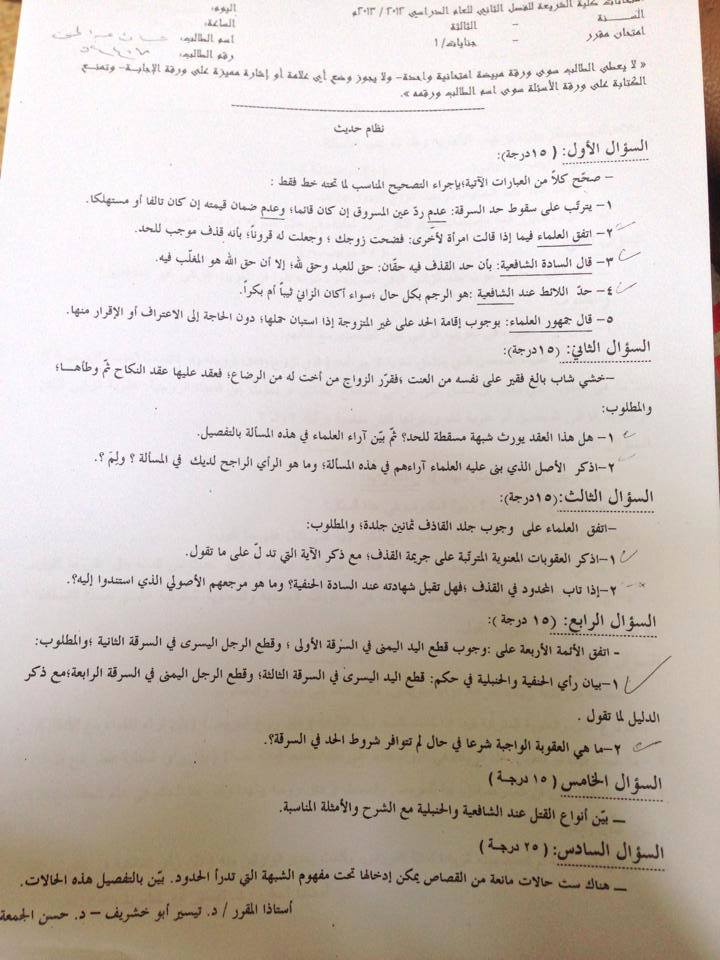 امتحانات كلية الشريعة للفصل الثاني للعام الدراسي ٢٠١٢ / ٢٠١٣م
اليوم:
السنة – الثالثة
الساعة:
امتحان مقرر – جنايات/١
اسم الطالب:
رقم الطالب:
« لا يعطى الطالب سوى ورقة مبيضة امتحانية واحدة- ولا يجوز وضع أي علامة أو إشارة مميزة على ورقة الإجابة- وتمنع
الكتابة على ورقة الأسئلة سوى اسم الطالب ورقمه ».
نظام حديث
السؤال الأول: (١٥درجة):
– صحّح كلاً من العبارات الآتية؛بإجراء التصحيح المناسب لما تحته خط فقط :
١– يترتّب على سقوط حد السرقة: عدم ردّ عين المسروق إن كان قائما؛ وعدم ضمان قيمته إن كان تالفا أو مستهلكا.
٢– اتفق العلماء فيما إذا قالت امرأة لأخرى: فضحت زوجك ؛ وجعلت له قروناً؛ بأنه قذف موجب للحد.
٣– قال السادة الشافعية: بأن حد القذف فيه حقّان: حق للعبد وحق لله؛ إلا أن حق الله هو المغلّب فيه.
٤– حدّ اللائط عند الشافعية :هو الرجم بكل حال ؛سواء أكان الزاني ثيباً أم بكراً.
٥– قال جمهور العلماء: بوجوب إقامة الحد على غير المتزوجة إذا استبان حملها؛ دون الحاجة إلى الاعتراف أو الإقرار منها.
السؤال الثاني: (١٥درجة):
–خشي شاب بالغ فقير على نفسه من العنت ؛فقرّر الزواج من أخت له من الرضاع؛ فعقد عليها عقد النكاح ثمّ وطأهـا؛
والمطلوب:
١– هل هذا العقد يورث شبهة مسقطة للحد؟ ثمّ بيّن آراء العلماء في هذه المسألة بالتفصيل.
٢–اذكر الأصل الذي بنى عليه العلماء آراءهم في هذه المسألة؛ وما هو الرأي الراجح لديك في المسألة ؟ ولِمَ ؟.
السؤال الثالث:(١٥درجة):
–اتفق العلماء على وجوب جلد القاذف ثمانين جلدة؛ والمطلوب:
١–اذكر العقوبات المعنوية المترتّبة على جريمة القذف؛ مع ذكر الآية التي تد لّ على ما تقول.
٢–إذا تاب المحدود في القذف ؛فهل تقبل شهادته عند السادة الحنفية؟ وما هو مرجعهم الأصولي الذي استندوا إليه؟.
السؤال الرابع: (١٥ درجة):
- اتفق الأئمة الأربعة على :وجوب قطع اليد اليمنى في السرقة الأولى ؛ وقطع الرجل اليسرى في السرقة الثانية ؛والمطلوب:
١–بيان رأي الحنفية والحنبلية في حكم: قطع اليد اليسرى في السرقة الثالثة؛ وقطع الرجل اليمنى في السرقة الرابعة؛مع ذكر
الدليل لما تقول .
٢–ما هي العقوبة الواجبة شرعا في حال لم تتوافر شروط الحد في السرقة؟.
السؤال الخامس (١٥ درجة)
ــ بيّن أنواع القتل عند الشافعية والحنبلية مع الشرح والأمثلة المناسبة.
السؤال السادس: (٢٥ درجة)
ــ هناك ست حالات مانعة من القصاص يمكن إدخالها تحت مفهوم الشبهة التي تدرأ الحدود. بيّن بالتفصيل هذه الحالات.
أستاذا المقرر / د. تيسير أبو خشريف – د. حسن الجمعة